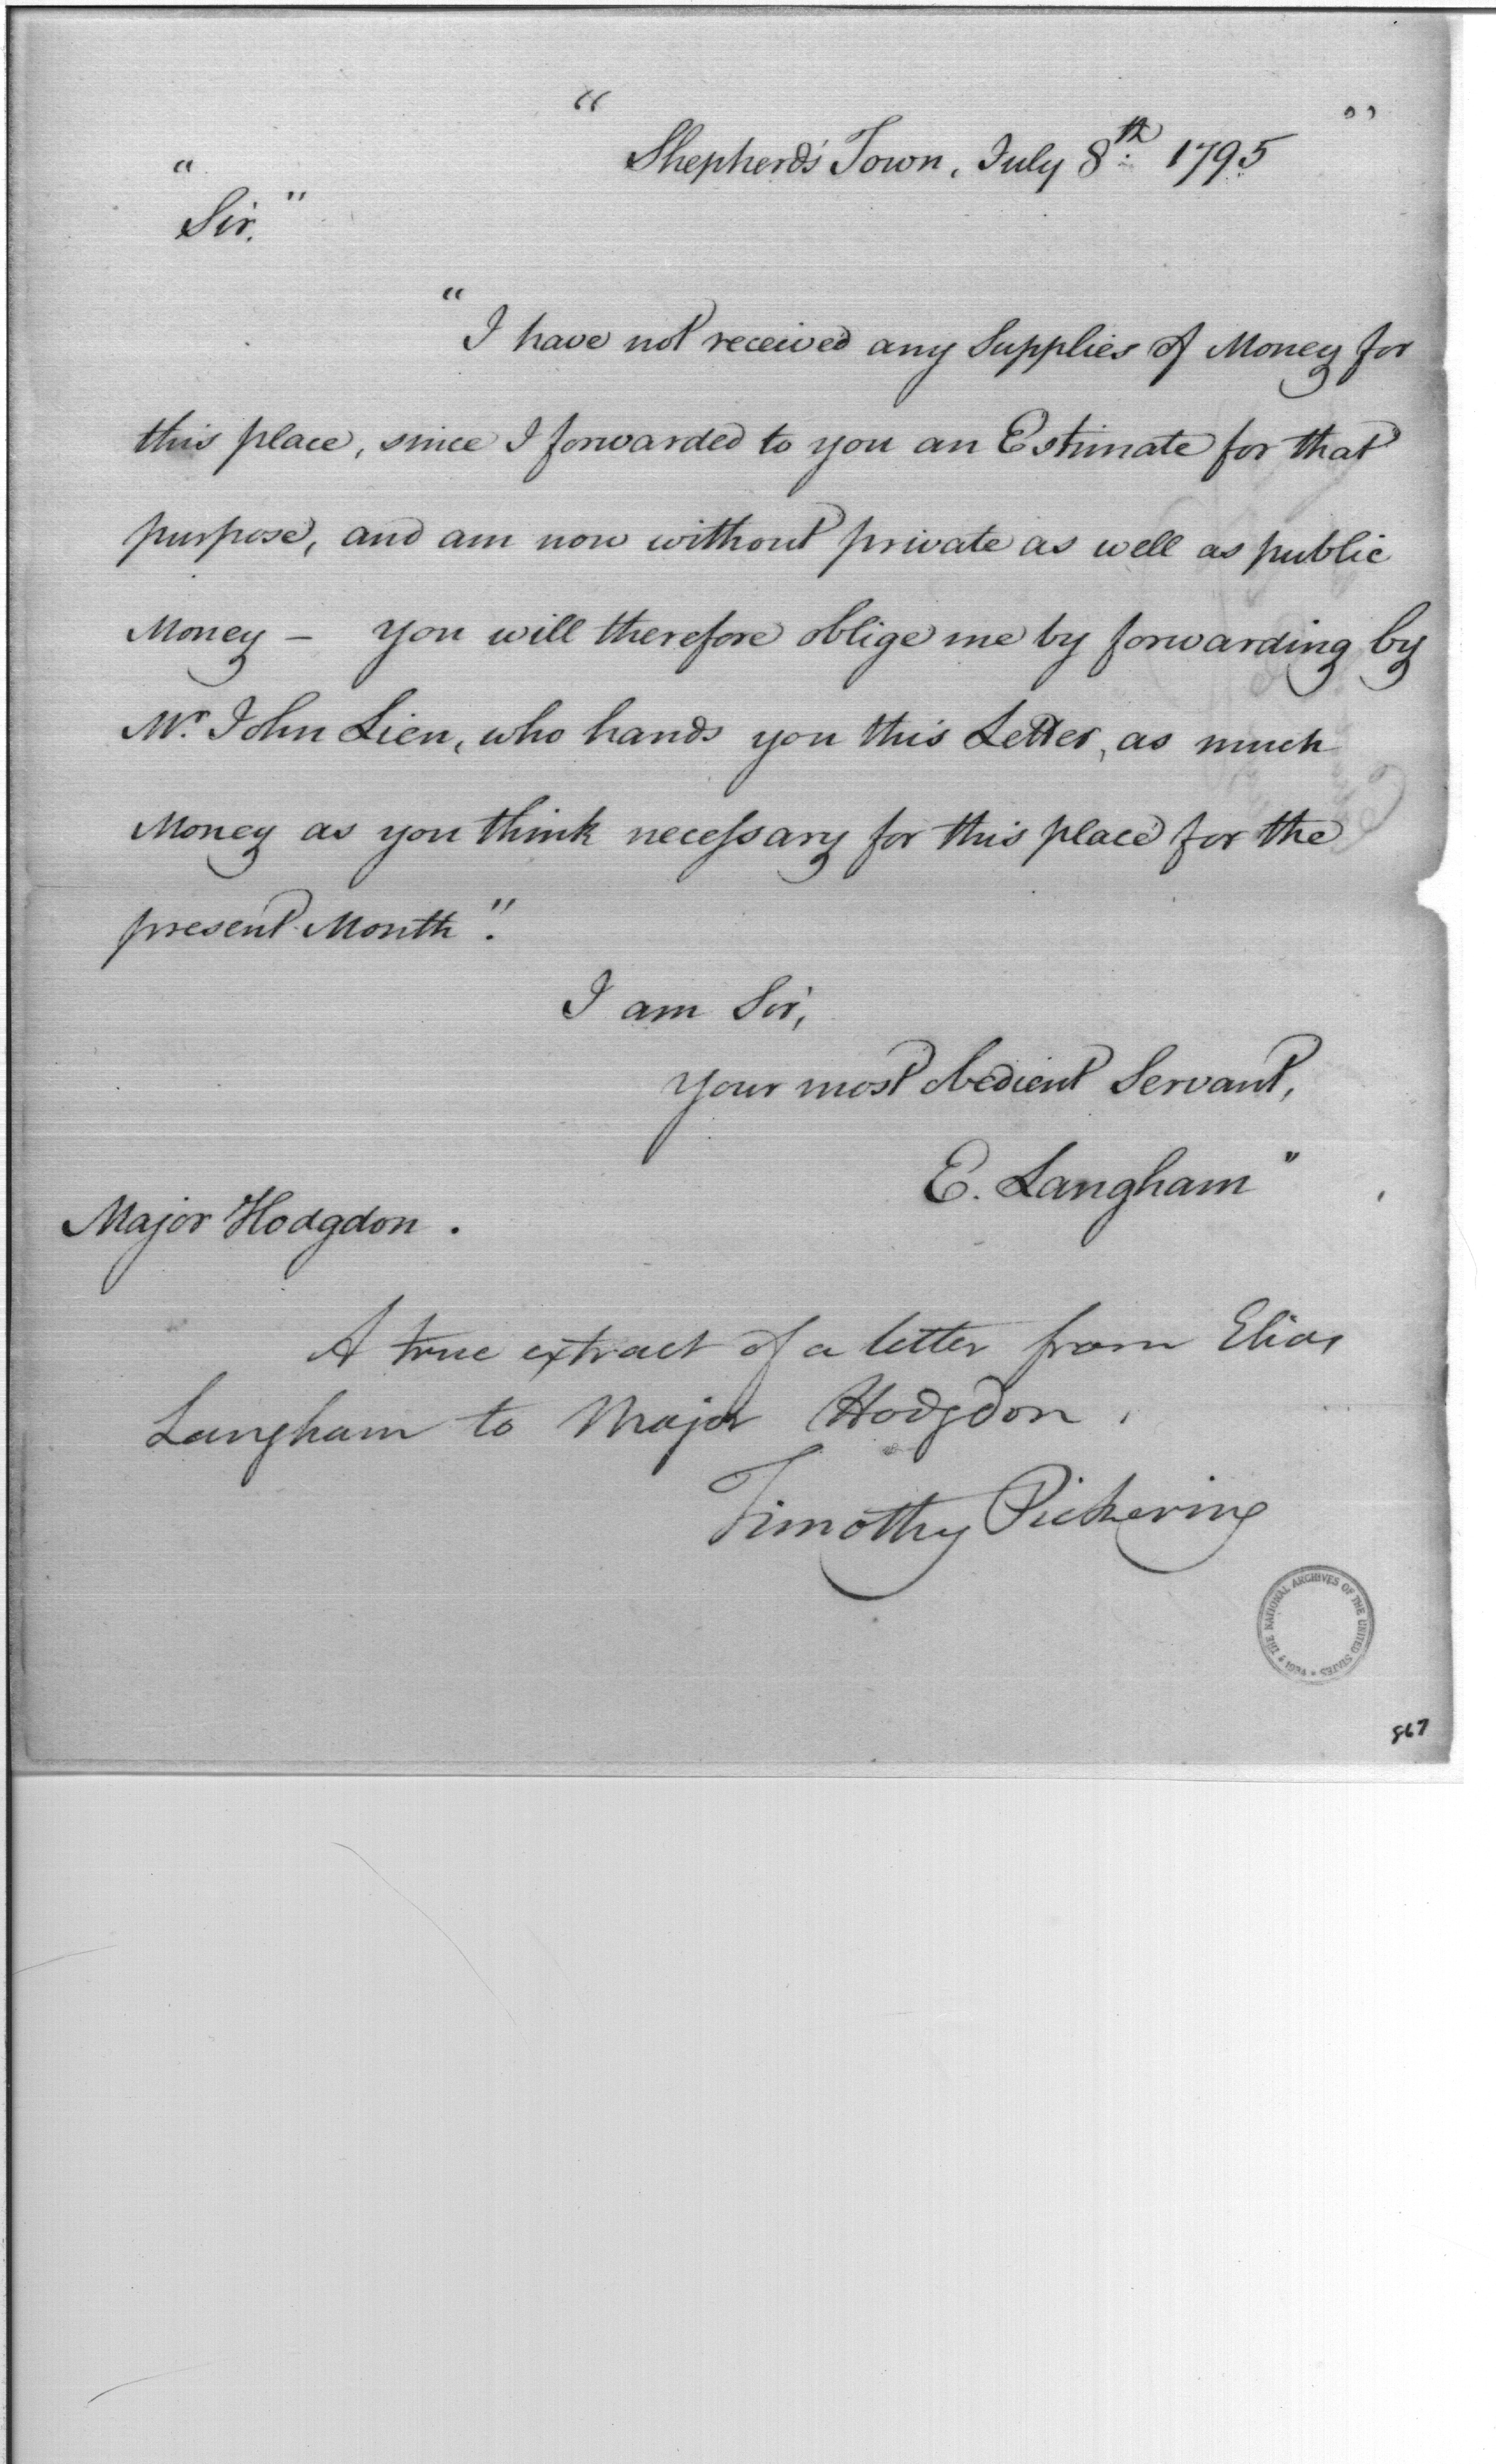 " Shepherd's Town, July 8th: 1795 "
" Sir. "
" I have not received any Supplies of Money for
this place, since I forwarded to you an Estimate for that
purpose, and am now without private as well as public
Money – you will therefore oblige me by forwarding by
Mr. John Lien, who hands you this Letter, as much
Money as you think necessary for this place for the
present Month."
I am Sir,
your most obedient Servant,
E. Langham"
Major Hodgdon.
A true extract of a letter from Elias
Langham to Major Hodgdon.
Timothy Pickering
THE NATIONAL ARCHIVES OF THE UNITED STATES * 1934 *
867